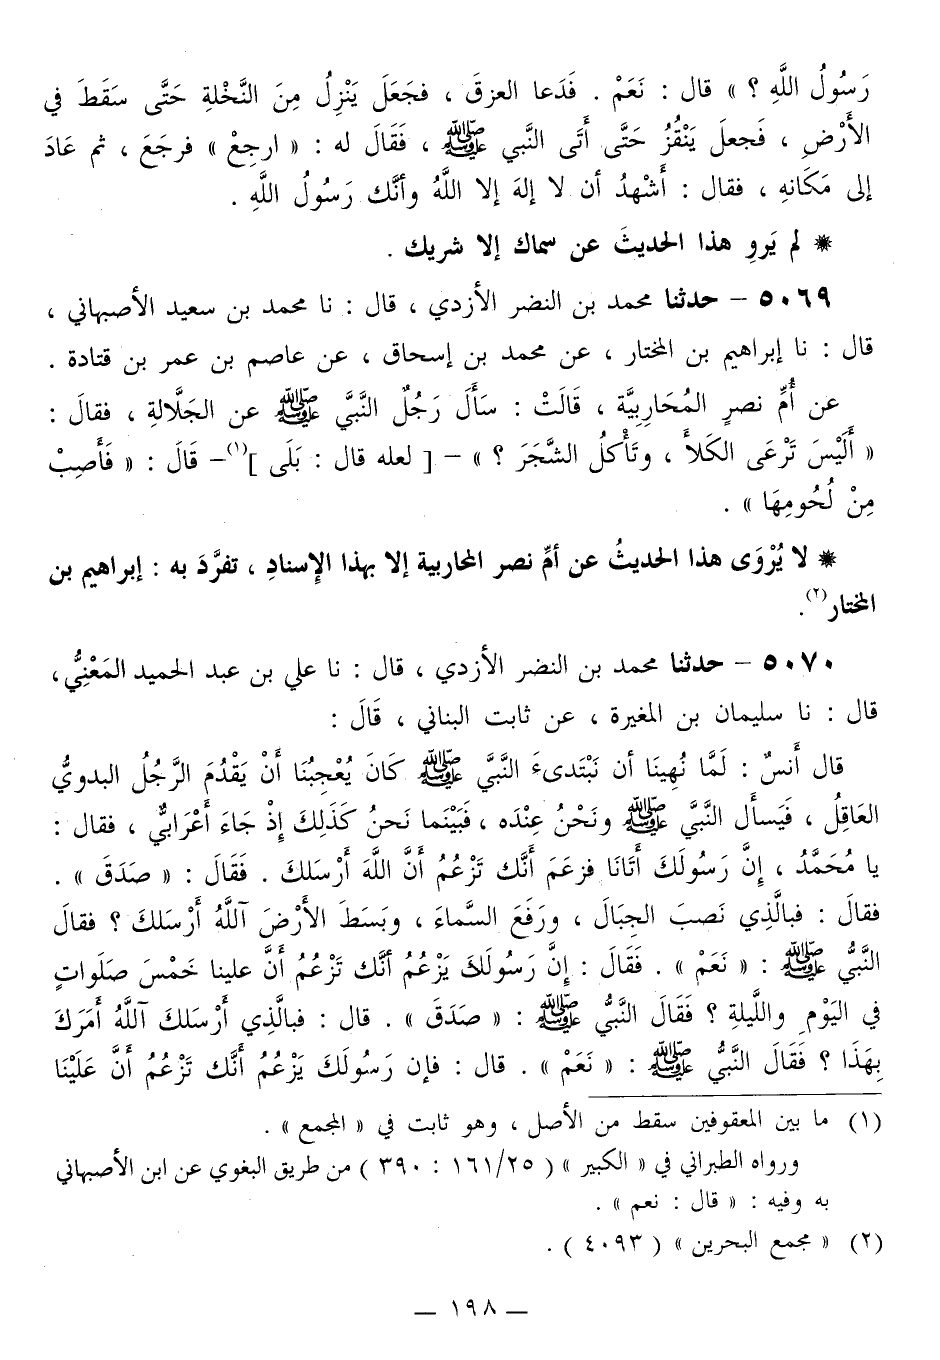 رَسُولُ اللَّهِ ؟ » قال : نَعَمْ . فَدَعا العزقَ ، فجَعَلَ يَنْزِلُ مِنَ النَّخْلةِ حَتَّى سقَطَ في
الأَرْضِ ، فَجعلَ يَنْقُزُ حَتَّى أَتَى النَّبي ﷺ ، فَقَالَ له : « ارجِعْ » فرجَعَ ، ثم عَادَ
إلى مَكَانهِ ، فقال : أَشْهدُ أن لا إلهَ إلا اللَّهُ وأنَّك رَسُولُ اللَّهِ .
* لم يَروِ هذا الحديثَ عن سماك إلا شريك .
٥٠٦٩ – حدثنا محمد بن النضر الأزدي ، قال : نا محمد بن سعيد الأصبهاني ،
قال : نا إبراهيم بن المختار ، عن محمد بن إسحاق ، عن عاصم بن عمر بن قتادة .
عن أُمِّ نصرٍ المُحَارِبِيَّة ، قَالَتْ : سَأَلَ رَجُلٌ النَّبيَّ ﷺ عن الجَلَّالةِ ، فقالَ :
« أَلَيْسَ تَرْعَى الكَلأَ ، وتَأْكلُ الشَّجَرَ ؟ » – [ لعله قال : بَلَى ](١)– قَالَ : « فَأَصِبْ
مِنْ لُحُومِهَا » .
* لا يُرْوَى هذا الحديثُ عن أمِّ نصر المحاربية إلا بهذا الإسنادِ ، تفرَّدَ به : إبراهيم بن
المختار(٢).
٥٠٧٠ – حدثنا محمد بن النضر الأزدي ، قال : نا علي بن عبد الحميد المَعْنِيُّ ،
قال : نا سليمان بن المغيرة ، عن ثابت البناني ، قَالَ :
قال أَنسٌ : لَمَّا نُهِينَا أن نَبْتَدىءَ النَّبيَّ ﷺ كَانَ يُعْجِبُنَا أَنْ يَقْدُمَ الرَّجُلُ البدويُّ
العَاقِلُ ، فَيَسأل النَّبيَّ ﷺ ونَحْنُ عِنْدَه ، فَبَيْنَما نَحنُ كَذَلِكَ إِذْ جَاءَ أَعْرَابيٌّ ، فقال :
يا مُحَمَّدُ ، إِنَّ رَسُولَكَ أَتَانَا فزعَمَ أَنَّك تَزْعُمُ أَنَّ اللَّهَ أَرْسَلكَ . فَقَالَ : « صَدَقَ » .
فقالَ : فبالَّذِي نَصبَ الجِبَالَ ، ورَفَعَ السَّماءَ ، وبَسَطَ الأَرْضَ آللَّهُ أَرْسلكَ ؟ فقالَ
النَّبيُّ ﷺ : « نَعَمْ » . فَقَالَ : إِنَّ رَسُولَكَ يَزْعُمُ أنَّك تَزْعُمُ أَنَّ علينا خَمْسَ صَلَواتٍ
في اليَوْمِ واللَّيلةِ ؟ فَقَالَ النَّبيُّ ﷺ : « صَدَقَ » . قال : فبالَّذِي أَرْسَلكَ آللَّهُ أَمَرَكَ
بِهَذَا ؟ فَقَالَ النَّبيُّ ﷺ : « نَعَمْ » . قال : فإن رَسُولَكَ يَزْعُمُ أَنَّك تَزْعُمُ أَنَّ عَلَيْنَا
(١) ما بين المعقوفين سقط من الأصل ، وهو ثابت في « المجمع » .
ورواه الطبراني في « الكبير » ( ١٦١/٢٥ : ٣٩٠ ) من طريق البغوي عن ابن الأصبهاني
به وفيه : « قال : نعم » .
(٢) « مجمع البحرين » ( ٤٠٩٣ ) .
— ١٩٨ —